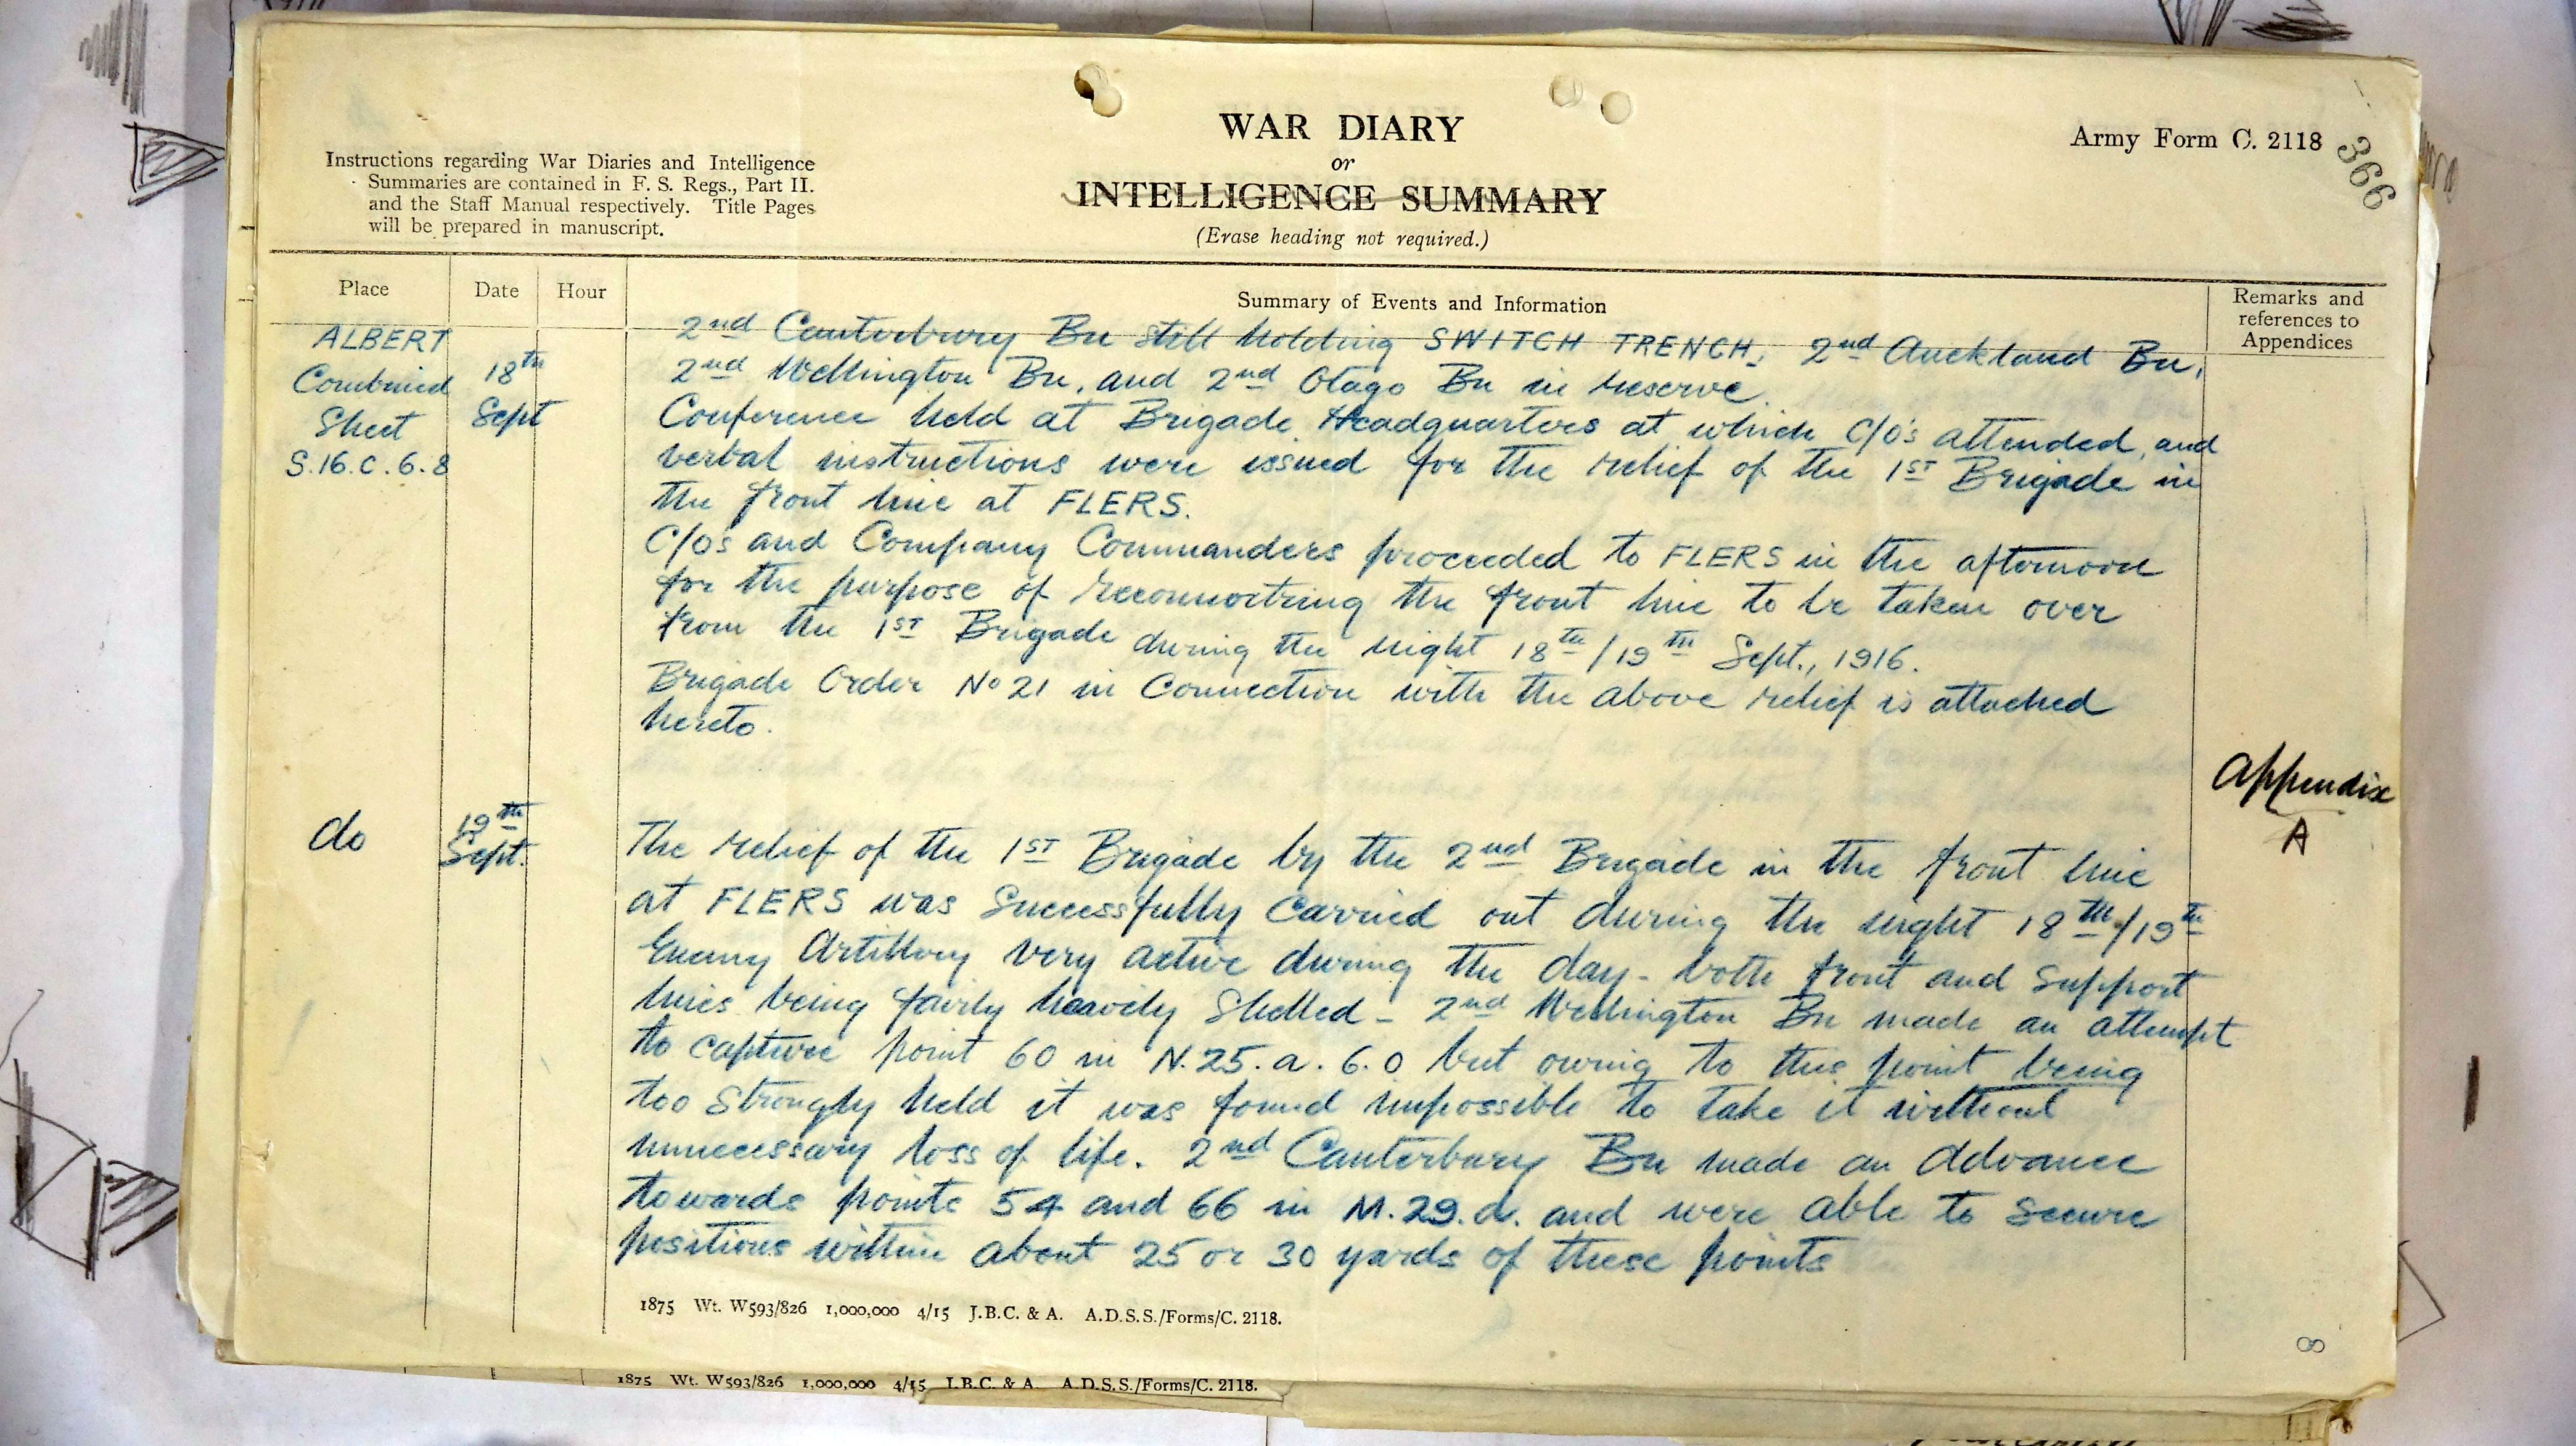 WAR DIARY
or
INTELLIGENCE SUMMARY
(Erase heading not required.)
Army Form C. 2118
366
Instructions regarding War Diaries and Intelligence
Summaries are contained in F. S. Regs., Part II.
and the Staff Manual respectively. Title Pages
will be prepared in manuscript.
Place
Date
Hour
Summary of Events and Information
Remarks and
references to
Appendices
ALBERT
Combined
Sheet
S.16.C.6.8
18th
Sept
2nd Canterbury Bn still holding SWITCH TRENCH, 2nd Auckland Bn,
2nd Wellington Bn, and 2nd Otago Bn in reserve.
Conference held at Brigade Headquarters at which C/O's attended, and
verbal instructions were issued for the relief of the 1ST Brigade in
the front line at FLERS.
C/O's and Company Commanders proceeded to FLERS in the afternoon
for the purpose of reconnoitring the front line to be taken over
from the 1ST Brigade during the night 18th/19th Sept., 1916.
Brigade Order No 21 in Connection with the above relief is attached
hereto.
Appendix
A
do
19th
Sept.
The relief of the 1ST Brigade by the 2nd Brigade in the front line
at FLERS was Successfully Carried out during the night 18th/19th
Enemy Artillery very active during the day - both front and support
lines being fairly heavily Shelled - 2nd Wellington Bn made an attempt
to capture point 60 in N.25.a.6.0 but owing to this point being
too Strongly held it was found impossible to take it without
unnecessary loss of life. 2nd Canterbury Bn made an advance
towards points 54 and 66 in M.29.d. and were able to secure
positions within about 25 or 30 yards of these points
1875 Wt. W593/826 1,000,000 4/15 J.B.C. & A. A.D.S.S./Forms/C. 2118.
8
1875 Wt. W593/826 1,000,000 4/15 J.B.C. & A. A.D.S.S./Forms/C. 2118.